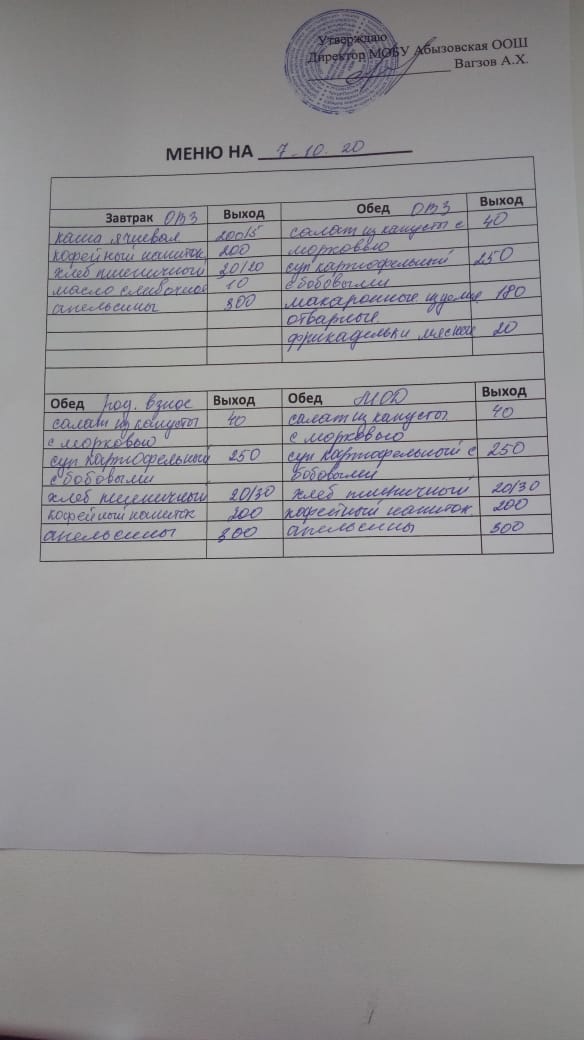 Утверждаю
Директор МОБУ Абызовская ООШ
Вагзов А.Х.
МЕНЮ НА 7.10.20
Завтрак ОВЗ Выход Обед ОВЗ Выход
каша ячневая 200/5 салат из капусты с 40
кофейный напиток 200 морковью
хлеб пшеничный 20/20 суп картофельный 250
масло сливочное 10 с бобовыми
апельсины 300 макаронные изделия 180
отварные
фрикадельки мясные 20
Обед род. взнос Выход Обед МОД Выход
салат из капусты 40 салат из капусты 40
с морковью с морковью
суп картофельный 250 суп картофельный с 250
с бобовыми бобовыми
хлеб пшеничный 20/30 хлеб пшеничный 20/30
кофейный напиток 200 кофейный напиток 200
апельсины 300 апельсины 300